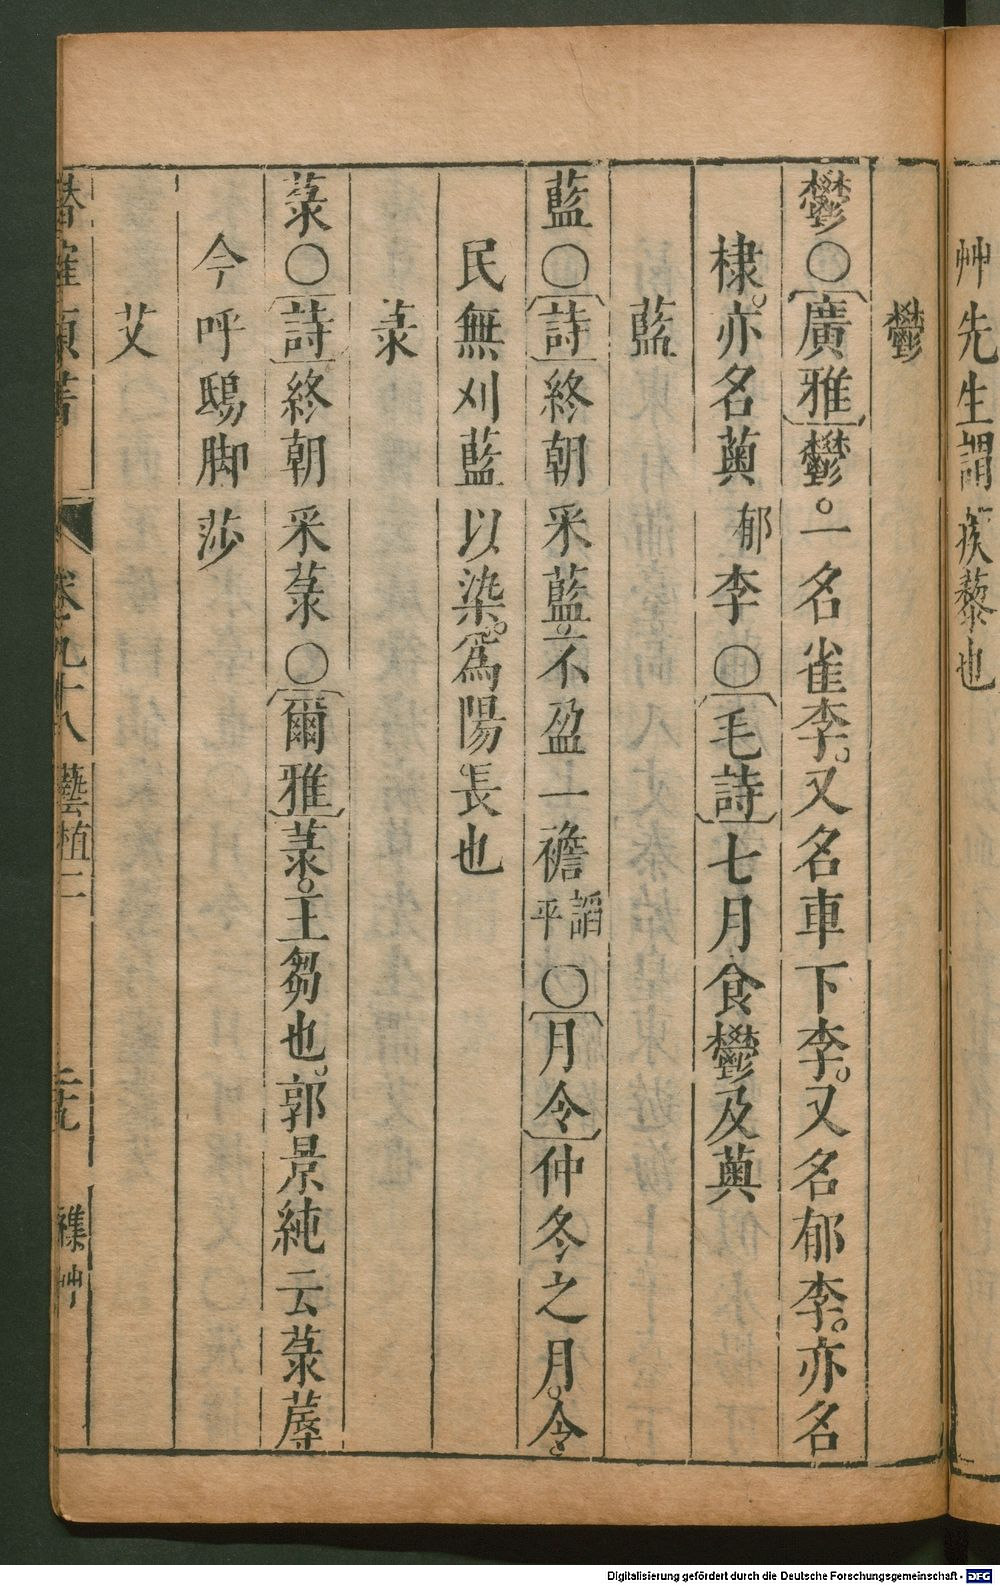 艸先生謂蒺藜也
鬱
鬱○廣雅鬱。一名雀李。又名車下李。又名郁李。亦名
棣。亦名薁郁李○毛詩七月食鬱及薁
藍
藍○詩終朝采藍。不盈一襜謟平○月令仲冬之月。令
民無刈藍以染。爲陽長也
菉
菉○詩終朝采菉○爾雅菉。王芻也。郭景純云菉蓐
今呼鴟脚莎
艾
潛確類書 卷九十八 藝植二 三九 襍艸
Digitalisierung gefördert durch die Deutsche Forschungsgemeinschaft - DFG